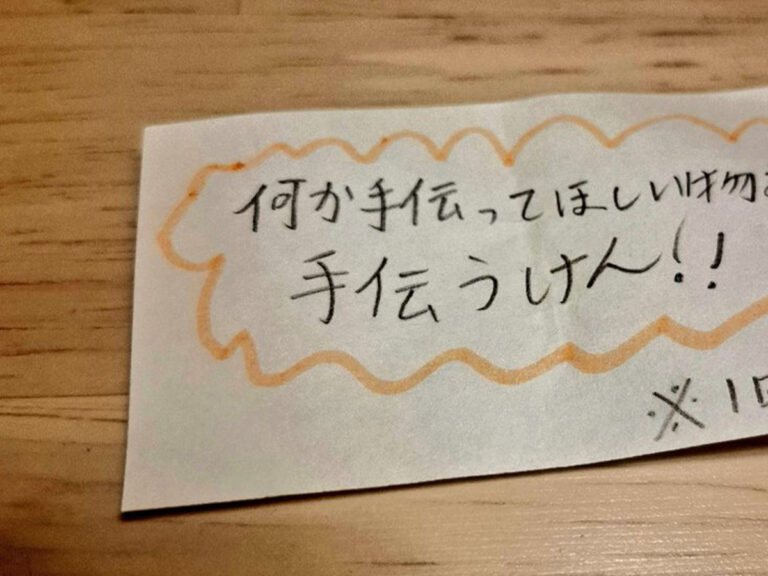 何か手伝ってほしい物
手伝うけん!!
※1